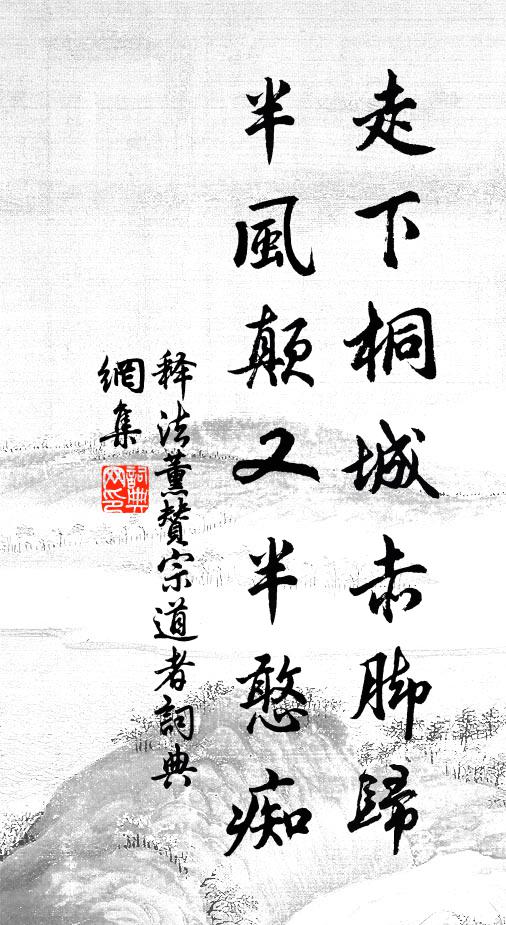 走下桐城赤脚歸
半風颠又半憨痴
释法薰赞宗道者詞典
網集
詞典网印